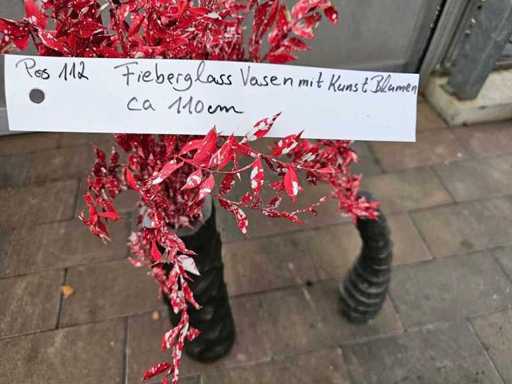 Pos 112 Fieberglass Vasen mit Kunst Blumen
ca 110cm